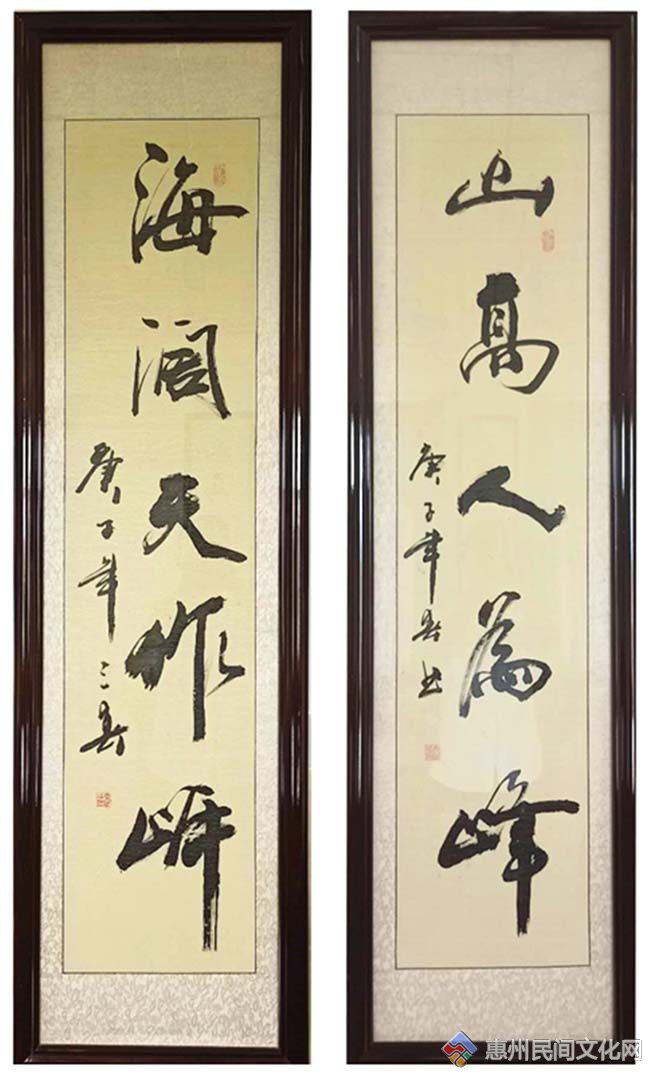 海阔天作岸
庚子年三春
山高人為峰
庚子年春书
惠州民间文化网